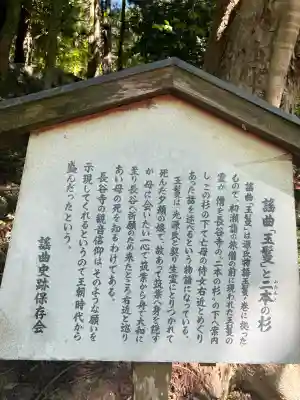 謡曲「玉鬘」と二本の杉
ふたもと
謡曲「玉鬘」は源氏物語玉鬘の巻に拠った
もので、初瀬詣の旅僧の前に現われた玉鬘の
霊が、僧を長谷寺の「二本の杉」の下へ案内
し、この杉の下で亡母の侍女右近とめぐり
あった話を述べるという物語になっている。
玉鬘は、光源氏と契り生霊にとりつかれて
死んだ夕顔の娘で、故あって筑紫へ身を隠す
が、母に会いたい一心で筑紫から舟で大和に
至り長谷へ祈願のため来たところ右近と巡り
あい母の死を知るわけてある。
長谷寺の観音信仰は、そのような願いを
示現してくれるというので王朝時代から
盛んだったという。
謡曲史跡保存会